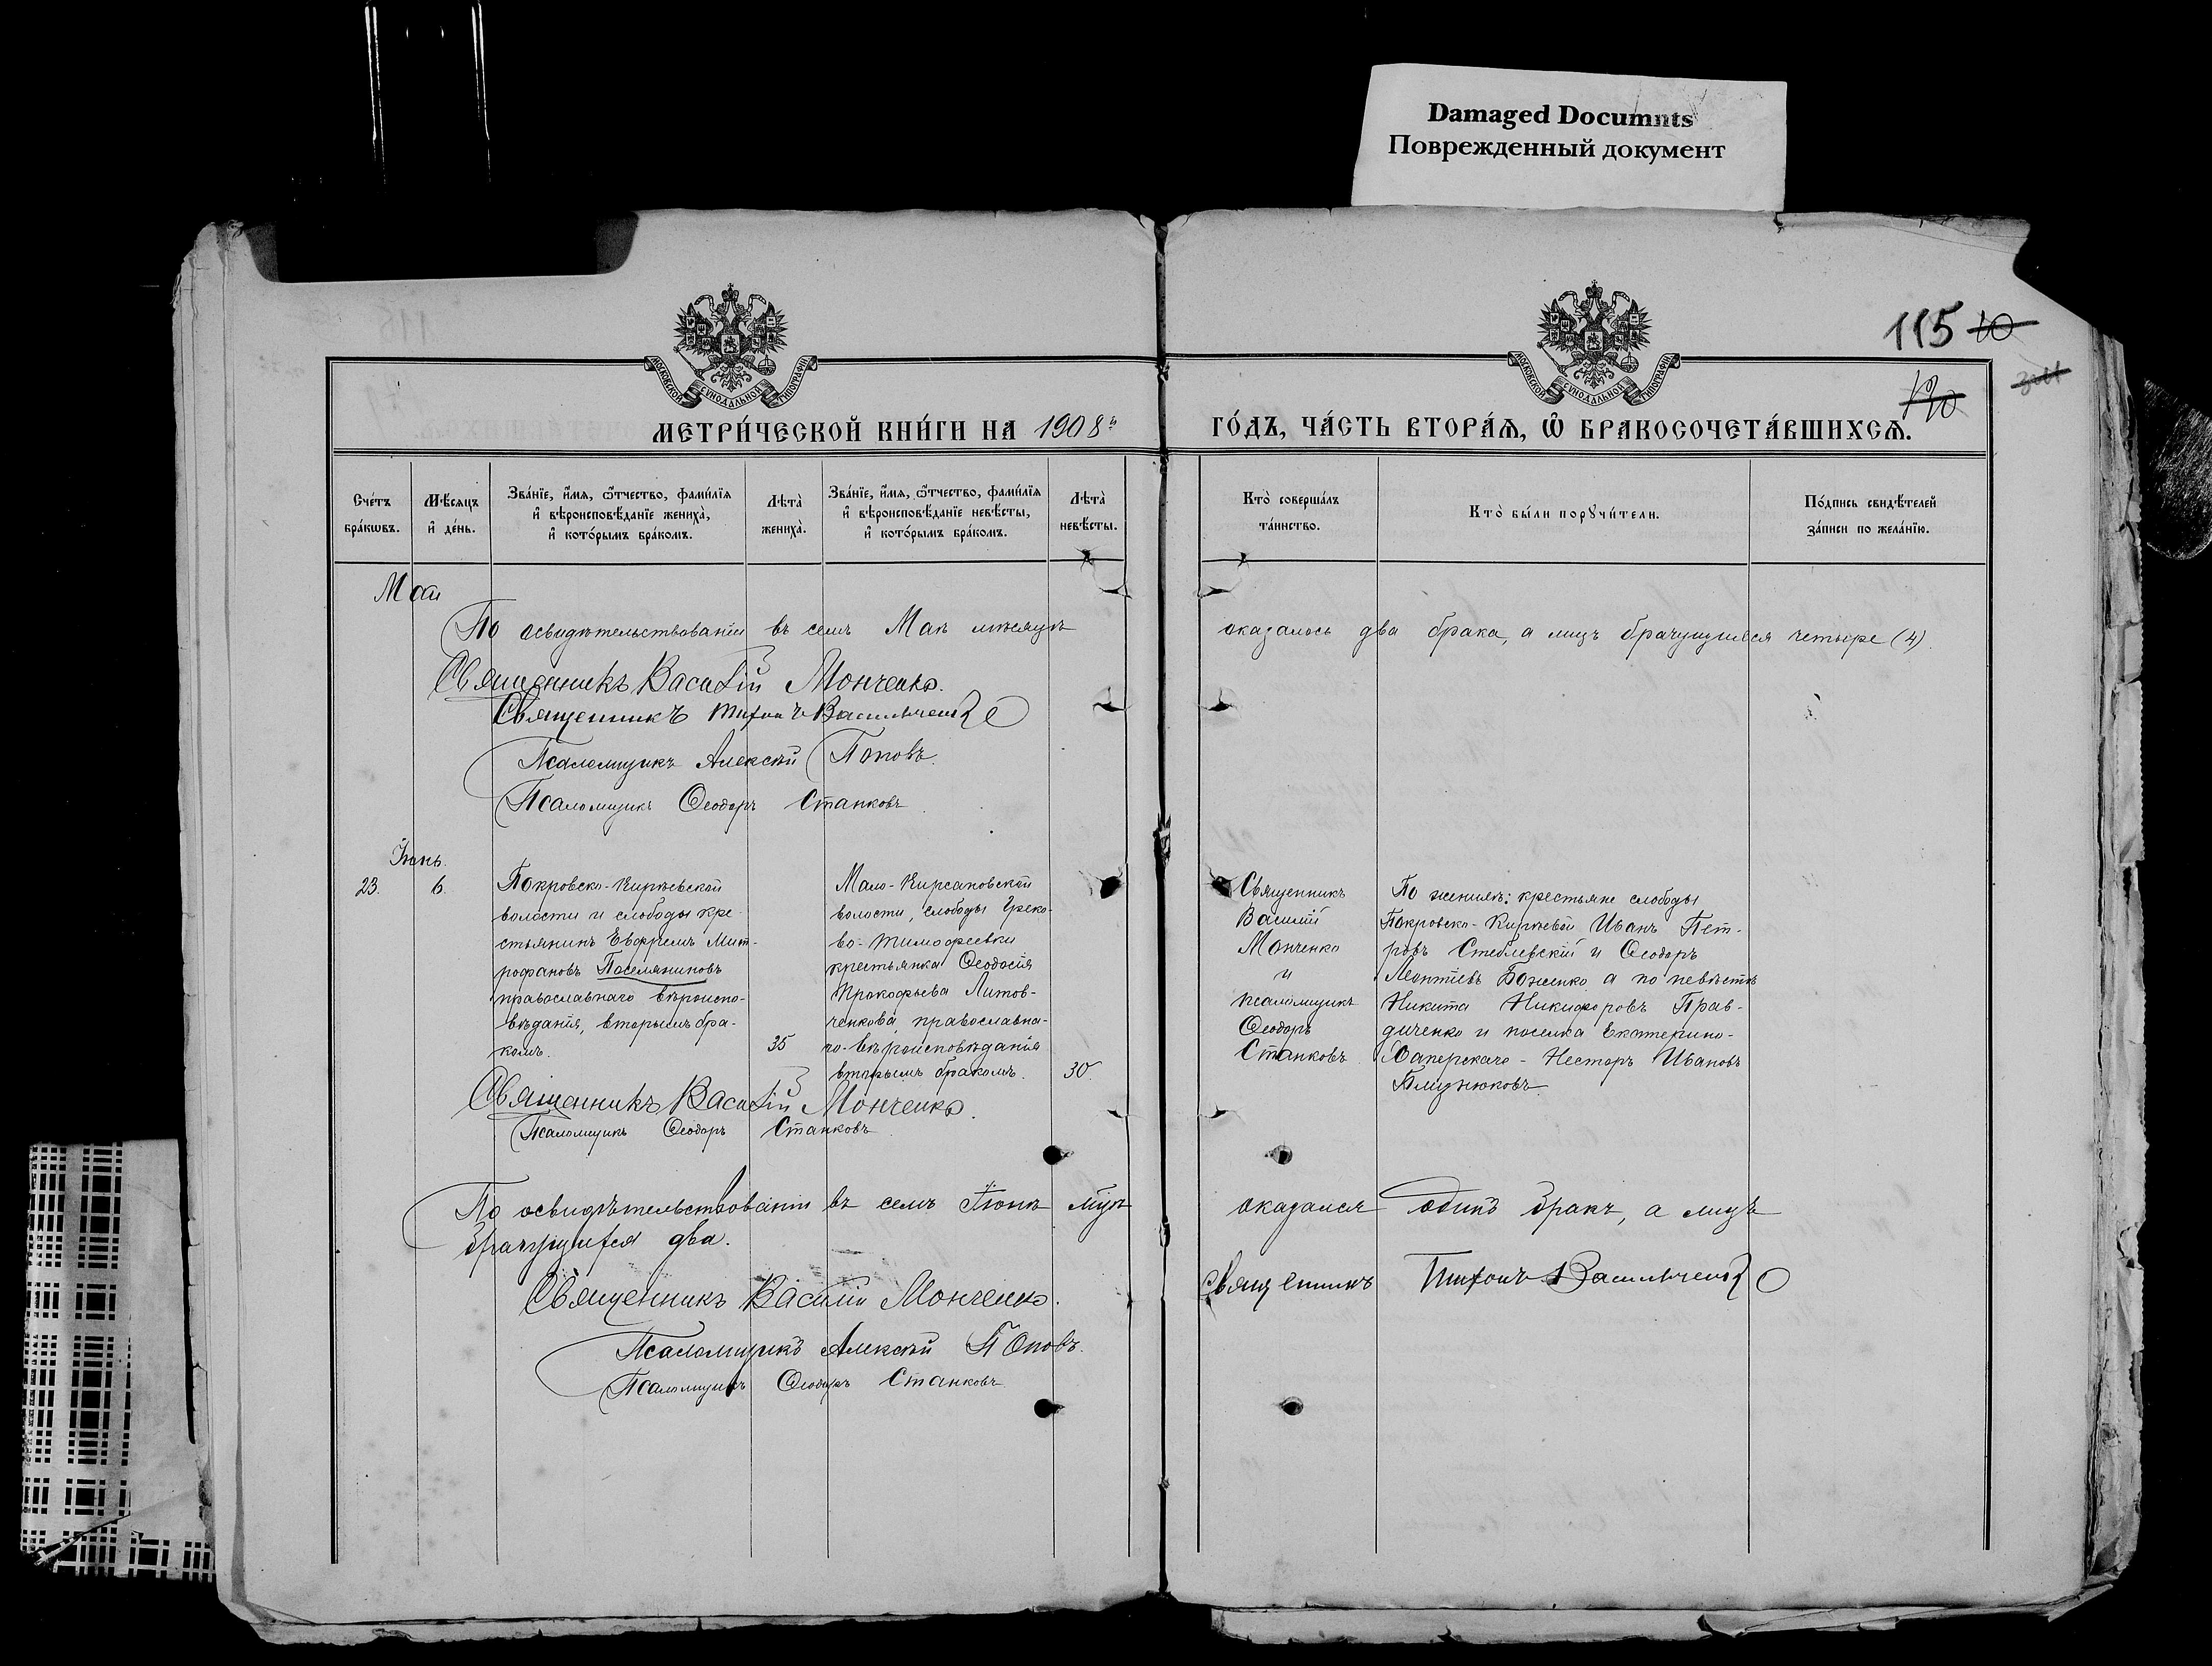 Damaged Documnts
Поврежденный документ
115 10
120
МОСКОВСКОЙ СѴНОДАЛЬНОЙ ТИПОГРАФІИ
МОСКОВСКОЙ СѴНОДАЛЬНОЙ ТИПОГРАФІИ
МЕТРИ́ЧЕСКОЙ КНИ́ГИ НА 1908й
ГО́ДЪ, ЧА́СТЬ ВТОРА́Ѧ, Ѡ҆ БРАКОСОЧЕТА́ВШИХСѦ.
Сче́тъ бра́кѡвъ.
Мѣ́сѧцъ и҆ де́нь.
Зва́нїе, и҆́мѧ, ѻ҆́тчество, фами́лїѧ и҆ вѣроисповѣ́данїе жениха̀, и҆ кото́рымъ бра́комъ.
Лѣ́та̀ жениха̀.
Зва́нїе, и҆́мѧ, ѻ҆́тчество, фами́лїѧ и҆ вѣроисповѣ́данїе невѣ́сты, и҆ кото́рымъ бра́комъ.
Лѣ́та̀ невѣ́сты.
Кто̀ соверша́лъ та́инство.
Кто̀ бы́ли порꙋчи́тели.
По́дпись свидѣ́телей за́писи по жела́нїю.
Май
По освидѣтельствованіи въ семъ Маѣ мѣсяцѣ оказалось два брака, а лицъ брачущихся четыре (4).
Священникъ Василій Монченко.
Священникъ Тихонъ Васильченко
Псаломщикъ Алексѣй Поповъ.
Псаломщикъ Ѳеодоръ Станковъ.
Іюнь.
23.
6.
Покровско-Кирѣевской
волости и слободы кре-
стьянинъ Евфремъ Мит-
рофановъ Поселяниновъ
православнаго вѣроиспо-
вѣданія, вторымъ бра-
комъ.
35
Мало-Кирсановской
волости, слободы Греко-
во-Тимофеевки
крестьянка Ѳеодосія
Прокофьева Литов-
ченкова, православна-
го вѣроисповѣданія
вторымъ бракомъ.
30.
Священникъ
Василій
Мончепко
и
псаломщикъ
Ѳеодоръ
Станковъ
По женихѣ: крестьяне слободы
Покровско-Кирѣевой Иванъ Пет-
ровъ Стеблевскій и Ѳеодоръ
Леонтіевъ Боженко, а по невѣстѣ
Никита Никифоровъ Прав-
диченко и поселка Екатерино-
Хаперскаго - Несторъ Ивановъ
Священникъ Василій Мончепко.
Псаломщикъ Ѳеодоръ Станковъ.
По освидѣтельствованіи въ семъ Іюнѣ мцѣ оказался одинъ бракъ, а лицъ
брачущихся два.
Священникъ Василій Мончепко.
Священникъ Тихонъ Васильченко
Псаломщикъ Алексѣй Поповъ.
Псаломщикъ Ѳеодоръ Станковъ